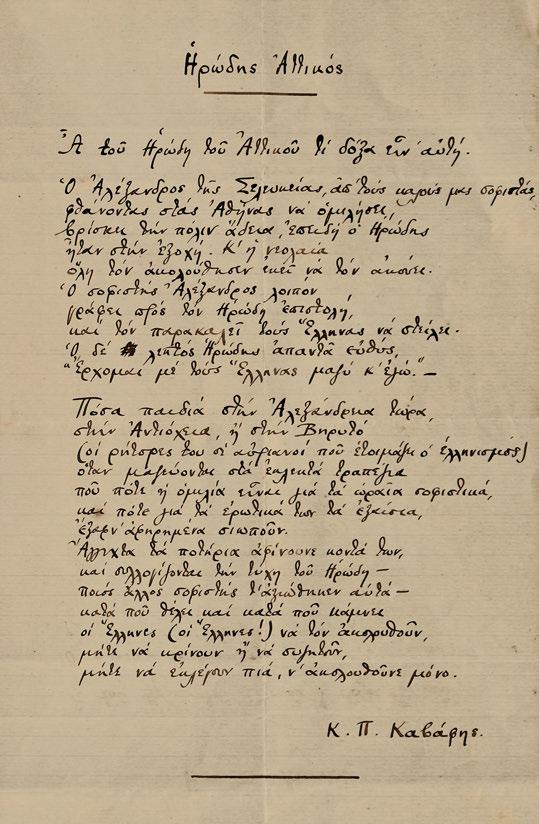 Ἡρώδης Ἀττικός
Ἆ τοῦ Ἡρώδη τοῦ Ἀττικοῦ τί δόξα εἶν' αὐτή.
Ὁ Ἀλέξανδρος τῆς Σελευκείας, ἀπ' τοὺς καλούς μας σοφιστάς,
φθάνοντας στὰς Ἀθήνας νὰ ὁμιλήσει,
βρίσκει τὴν πόλιν ἄδεια, ἐπειδὴ ὁ Ἡρώδης
ἦταν στὴν ἐξοχή. Κ' ἡ νεολαία
ὅλη τὸν ἀκολούθησεν ἐκεῖ νὰ τὸν ἀκούει.
Ὁ σοφιστὴς Ἀλέξανδρος λοιπὸν
γράφει πρὸς τὸν Ἡρώδη ἐπιστολή,
καὶ τὸν παρακαλεῖ τοὺς Ἕλληνας νὰ στείλει.
Ὁ δὲ λεπτὸς Ἡρώδης ἀπαντᾶ εὐθύς,
«Ἔρχομαι μὲ τοὺς Ἕλληνας μαζὺ κ' ἐγώ.» —
Πόσα παιδιὰ στὴν Ἀλεξάνδρεια τώρα,
στὴν Ἀντιόχεια, ἢ στὴν Βηρυτὸ
(οἱ ρήτορές του οἱ αὐριανοὶ ποὺ ἑτοιμάζει ὁ ἑλληνισμός)
ὅταν μαζεύονται στὰ ἐκλεκτὰ τραπέζια
ποὺ πότε ἡ ὁμιλία εἶναι γιὰ τὰ ὡραῖα σοφιστικά,
καὶ πότε γιὰ τὰ ἐρωτικά των τὰ ἐξαίσια,
ἔξαφν' ἀφηρημένα σιωποῦν.
Ἄγγιχτα τὰ ποτήρια ἀφίνουνε κοντά των,
καὶ συλλογίζονται τὴν τύχη τοῦ Ἡρώδη —
ποιός ἄλλος σοφιστὴς τ' ἀξιώθηκεν αὐτά —
κατὰ ποὺ θέλει καὶ κατὰ ποὺ κάμνει
οἱ Ἕλληνες (οἱ Ἕλληνες!) νὰ τὸν ἀκολουθοῦν,
μήτε νὰ κρίνουν ἢ νὰ συζητοῦν,
μήτε νὰ ἐκλέγουν πιά, ν' ἀκολουθοῦνε μόνο.
Κ. Π. Καβάφης.